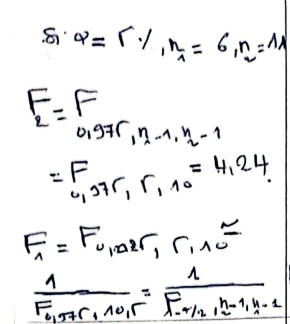 Si α = 5%, n₁ = 6, n₂ = 11
F₂ = F
0,975, n₁-1, n₂-1
= F 0,975, 5, 10 = 4,24
F₁ = F 0,025, 5, 10 =
1 / F 0,975, 10, 5 = 1 / F 1-α/2, n₂-1, n₁-1